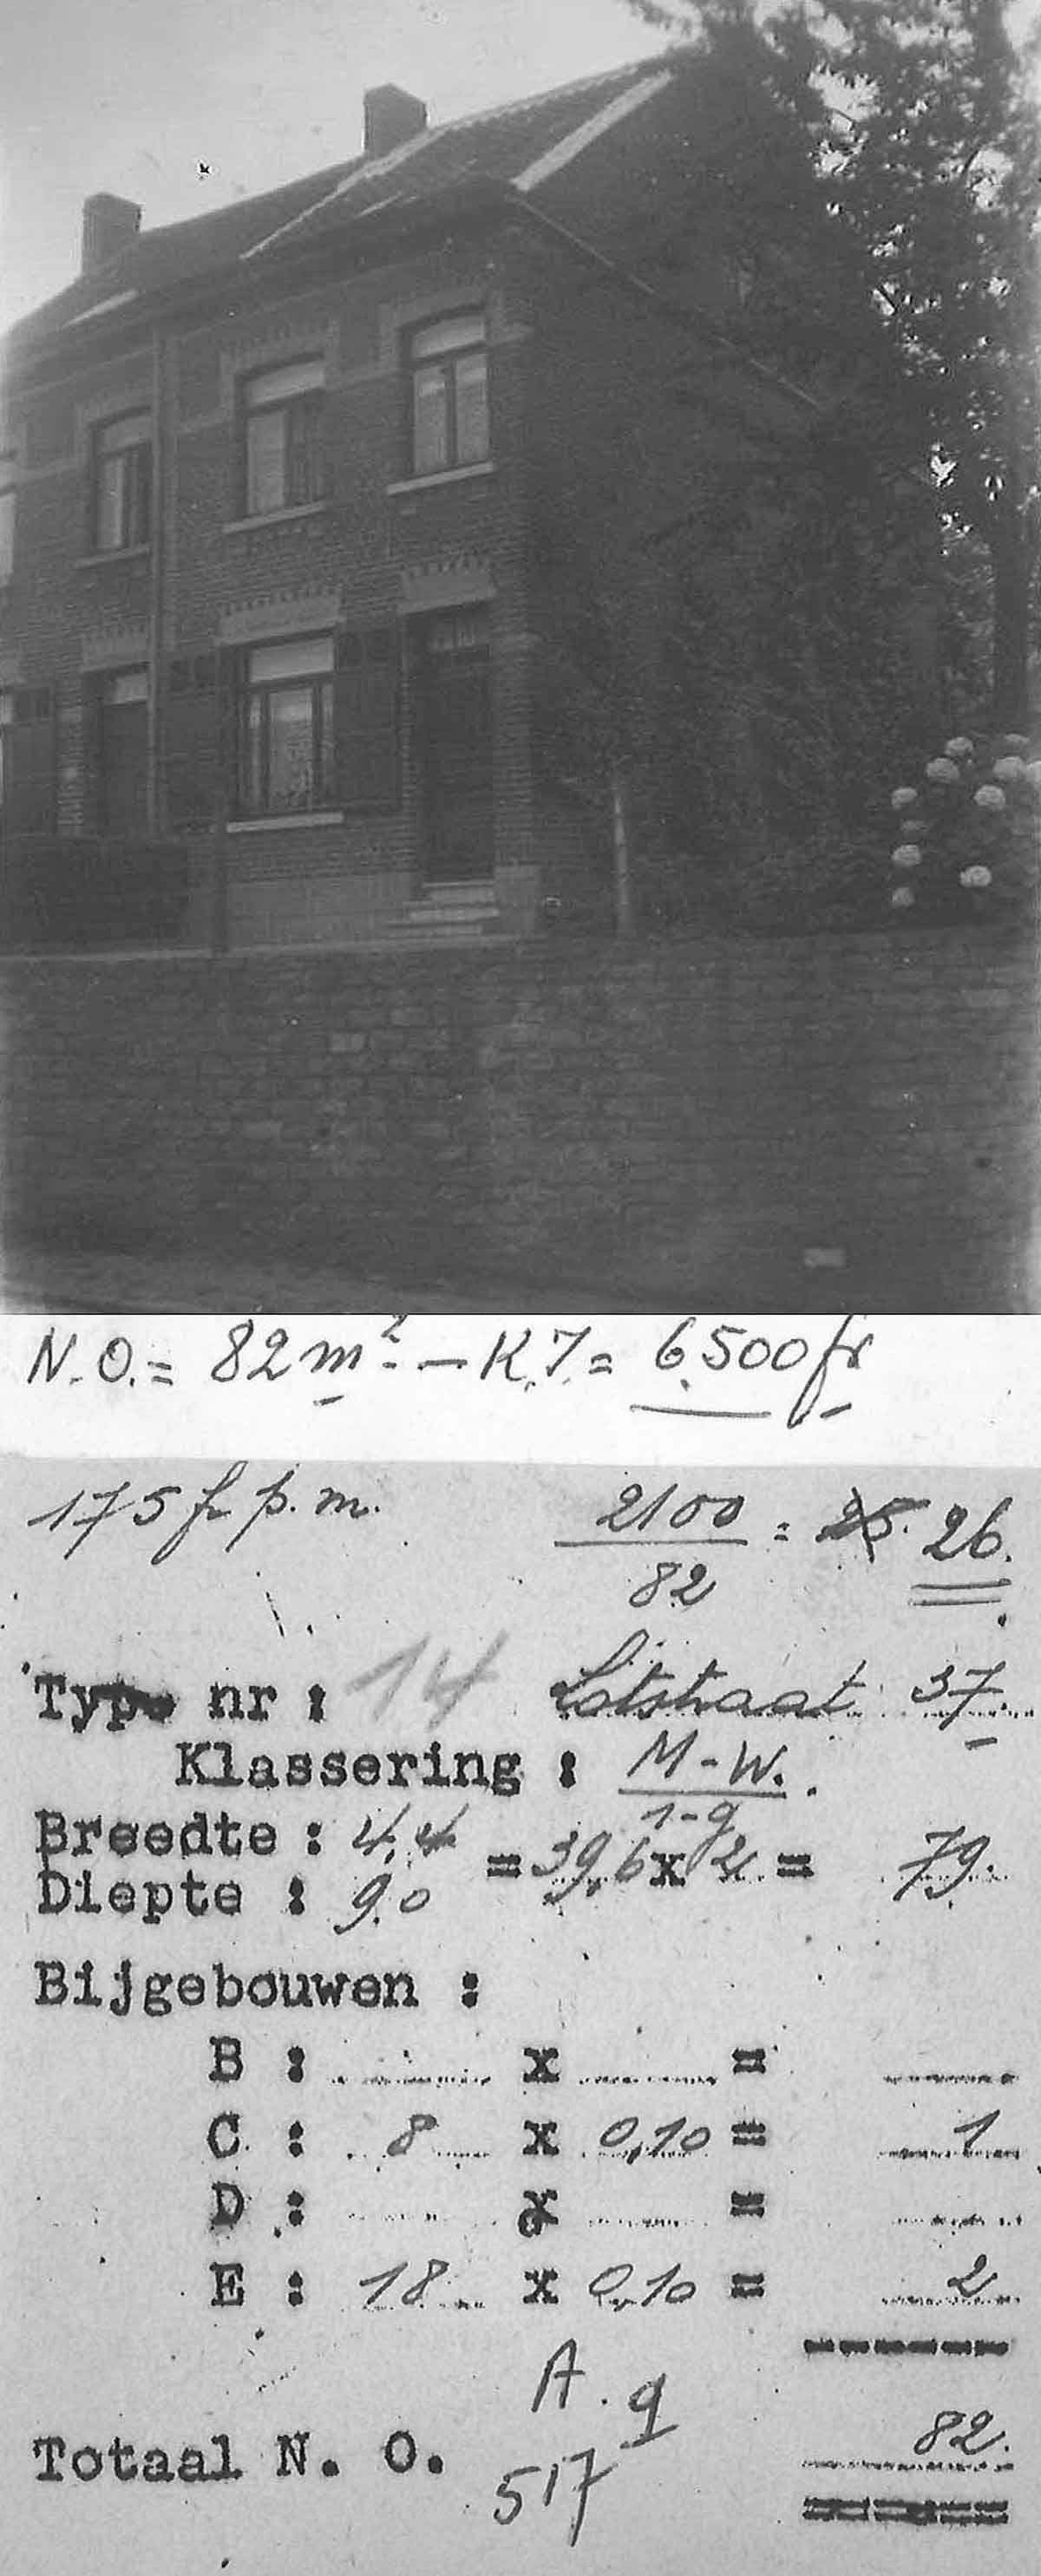 N.O. = 82 m² - K.7. = 6.500 fr
175 fr p.m. 2100 / 82 = 25. 26.
Type nr : 14 Lotstraat 37
Klassering : M-W.
1-g
Breedte : 4,4
Diepte : 9.0 = 39,6 x 2 = 79.
Bijgebouwen :
B : x =
C : 8 x 0,10 = 1
D : x =
E : 18 x 0,10 = 2
A. g
Totaal N. O. 82.
517